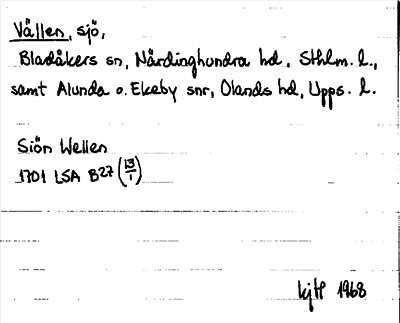 Vällen, sjö,
Bladåkers sn, Närdinghundra hd, Sthlm. l.,
samt Alunda o. Ekeby snr, Olands hd, Upps. l.
Siön Wellen
1701 LSA B27 (13/1)
kjH 1968